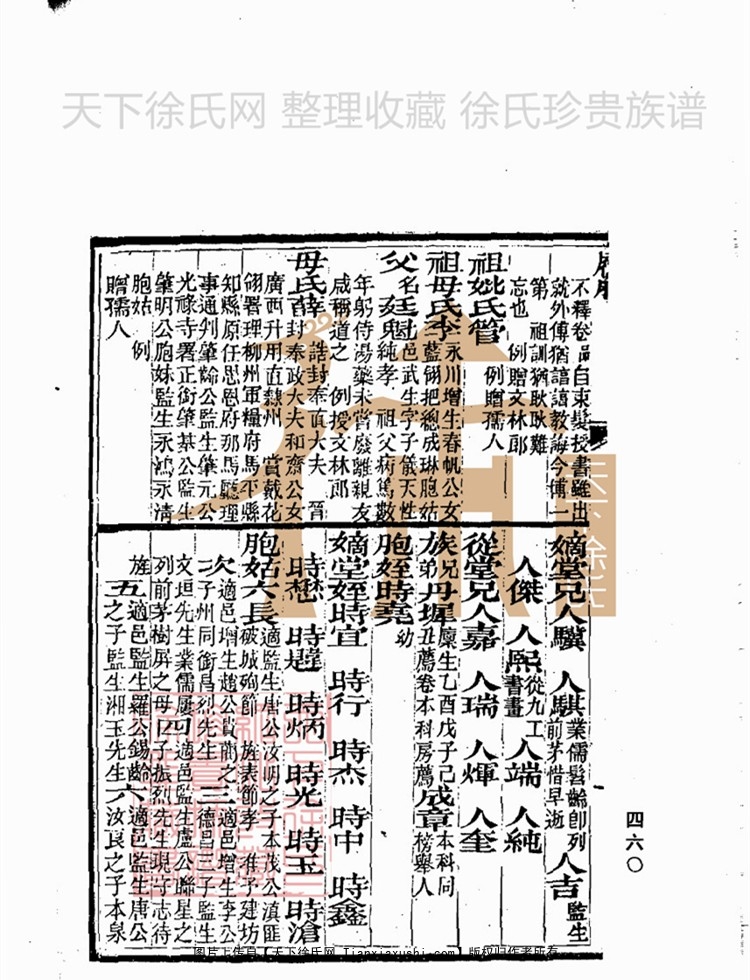 天下徐氏网 整理收藏 徐氏珍贵族谱
不釋卷品自束髮授書雖出
就外傅猶諄諄教誨今傅一
第 祖訓猶耿耿難
忘也 例贈文林郎
祖妣氏管 例贈孺人
祖母氏李 永川增生春帆公女
藍翎把總成琳胞姑
父 名廷魁 邑武生字子儀天性
純孝 祖父病篤數
年躬侍湯藥未嘗廢離親友
咸稱道之 例授文林郎
母氏薛 誥封奉直大夫 晉
封奉政大夫和齋公女
廣西升用直隸州 賞戴花
翎署理柳州軍糧府馬平縣
知縣原任思恩府那馬廳理
事通判肇齡公監生肇元公
光祿寺署正銜肇基公監生
肇明公胞妹監生永鴻永清
胞姑 例
贈孺人
嫡堂兄人驥 人騏 業儒髫齡卽列
前茅惜早逝 人吉 監生
人傑 人熙 從九工
書畫 人端 人純
從堂兄人嘉 人瑞 人煇 人奎
族 兄
弟 丹墀 廩生乙酉戊子己
丑薦卷本科房薦 成章 本科同
榜舉人
胞姪時堯 幼
嫡堂姪時宣 時行 時杰 時中 時鑫
時懋 時韙 時炳 時光 時玉 時滄
胞姑六長 適監生唐公汝明之子本茂公滇匪
破城殉節 旌表節孝 准予建坊
次 適邑增生趙公貢蘭之
子州同銜昌烈先生 三 適邑增生李公
德昌三子監生
文垣先生業儒屢
列前茅樹屏之母 四 適邑監生盧公聯星之
子振烈先生現守志待
旌 五 適邑監生羅公錫齡
之子監生湘玉先生 六 適邑監生唐公
汝良之子本泉
四六〇
图片上传自【天下徐氏网 Tianxiaxushi.com】版权归作者所有
天下徐氏